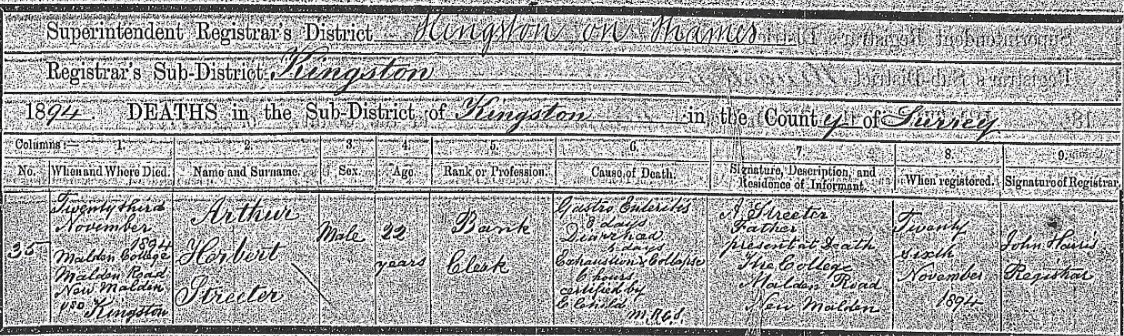 Superintendent Registrar's District Kingston on Thames
Registrar's Sub-District Kingston
1894. DEATHS in the Sub-District of Kingston in the County of Surrey
Columns:— 1. 2. 3. 4. 5. 6. 7. 8. 9.
No. When and Where Died. Name and Surname. Sex. Age. Rank or Profession. Cause of Death. Signature, Description, and Residence of Informant. When registered. Signature of Registrar.
35
Twenty third
November
1894
Malden College
Malden Road
New Malden
Kingston
Arthur
Herbert
Streeter
Male
22
years
Bank
Clerk
Gastro Enteritis
8 days
Diarrhoea
5 days
Exhaustion & Collapse
6 hours
certified by
M.R.C.S.
A. Streeter
Father
present at Death
The College
Malden Road
New Malden
Twenty
sixth
November
1894
John Harris
Registrar